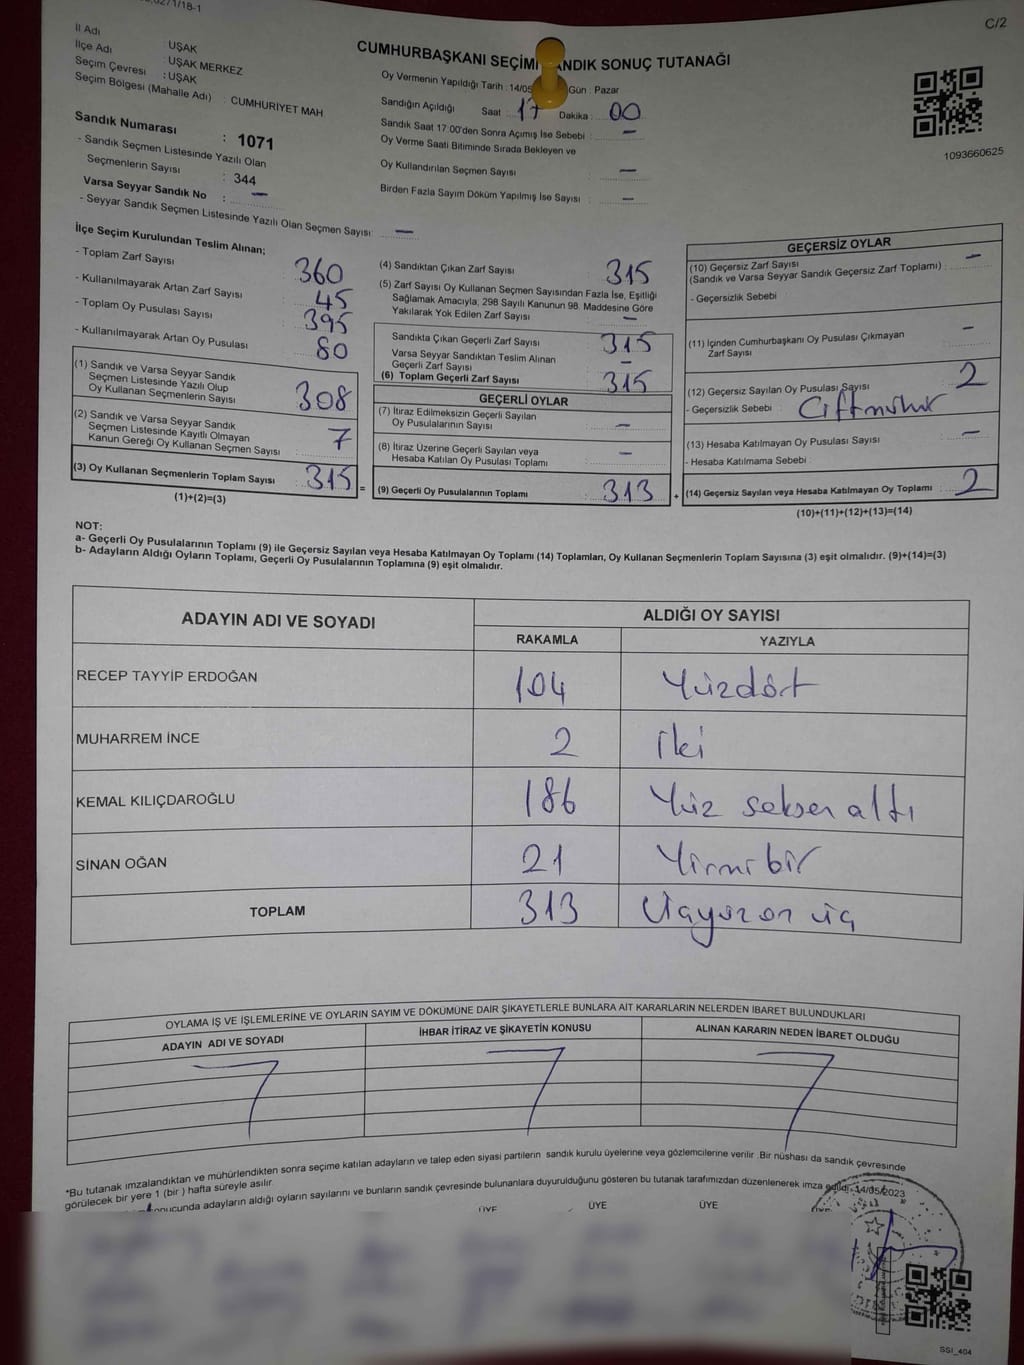 C/2
İl Adı
İlçe Adı : UŞAK
Seçim Çevresi : UŞAK MERKEZ
Seçim Bölgesi (Mahalle Adı) : UŞAK
: CUMHURİYET MAH
Sandık Numarası : 1071
- Sandık Seçmen Listesinde Yazılı Olan
Seçmenlerin Sayısı : 344
Varsa Seyyar Sandık No : —
- Seyyar Sandık Seçmen Listesinde Yazılı Olan Seçmen Sayısı: —
CUMHURBAŞKANI SEÇİMİ SANDIK SONUÇ TUTANAĞI
Oy Vermenin Yapıldığı Tarih : 14/05 Gün : Pazar
Sandığın Açıldığı Saat : 17 Dakika : 00
Sandık Saat 17:00'den Sonra Açımış İse Sebebi : —
Oy Verme Saati Bitiminde Sırada Bekleyen ve
Oy Kullandırılan Seçmen Sayısı : —
Birden Fazla Sayım Döküm Yapılmış İse Sayısı : —
1093660625
İlçe Seçim Kurulundan Teslim Alınan;
- Toplam Zarf Sayısı : 360
- Kullanılmayarak Artan Zarf Sayısı : 45
- Toplam Oy Pusulası Sayısı : 395
- Kullanılmayarak Artan Oy Pusulası : 80
(1) Sandık ve Varsa Seyyar Sandık
Seçmen Listesinde Yazılı Olup
Oy Kullanan Seçmenlerin Sayısı : 308
(2) Sandık ve Varsa Seyyar Sandık
Seçmen Listesinde Kayıtlı Olmayan
Kanun Gereği Oy Kullanan Seçmen Sayısı : 7
(3) Oy Kullanan Seçmenlerin Toplam Sayısı : 315 =
(1)+(2)=(3)
(4) Sandıktan Çıkan Zarf Sayısı 315
(5) Zarf Sayısı Oy Kullanan Seçmen Sayısından Fazla İse, Eşitliği
Sağlamak Amacıyla; 298 Sayılı Kanunun 98. Maddesine Göre
Yakılarak Yok Edilen Zarf Sayısı : —
Sandıkta Çıkan Geçerli Zarf Sayısı 315
Varsa Seyyar Sandıktan Teslim Alınan
Geçerli Zarf Sayısı : —
(6) Toplam Geçerli Zarf Sayısı 315
GEÇERLİ OYLAR
(7) İtiraz Edilmeksizin Geçerli Sayılan
Oy Pusulalarının Sayısı : —
(8) İtiraz Üzerine Geçerli Sayılan veya
Hesaba Katılan Oy Pusulası Toplamı : —
(9) Geçerli Oy Pusulalarının Toplamı : 313 +
GEÇERSİZ OYLAR
(10) Geçersiz Zarf Sayısı
(Sandık ve Varsa Seyyar Sandık Geçersiz Zarf Toplamı) : —
- Geçersizlik Sebebi
(11) İçinden Cumhurbaşkanı Oy Pusulası Çıkmayan
Zarf Sayısı —
(12) Geçersiz Sayılan Oy Pusulası Sayısı : 2
- Geçersizlik Sebebi : Çiftmühür
(13) Hesaba Katılmayan Oy Pusulası Sayısı : —
- Hesaba Katılmama Sebebi :
(14) Geçersiz Sayılan veya Hesaba Katılmayan Oy Toplamı : 2
(10)+(11)+(12)+(13)=(14)
NOT:
a- Geçerli Oy Pusulalarının Toplamı (9) ile Geçersiz Sayılan veya Hesaba Katılmayan Oy Toplamı (14) Toplamları, Oy Kullanan Seçmenlerin Toplam Sayısına (3) eşit olmalıdır. (9)+(14)=(3)
b- Adayların Aldığı Oyların Toplamı, Geçerli Oy Pusulalarının Toplamına (9) eşit olmalıdır.
ADAYIN ADI VE SOYADI
ALDIĞI OY SAYISI
RAKAMLA YAZIYLA
RECEP TAYYİP ERDOĞAN 104 Yüzdört
MUHARREM İNCE 2 İki
KEMAL KILIÇDAROĞLU 186 Yüz seksen altı
SİNAN OĞAN 21 Yirmi bir
TOPLAM 313 Üçyüz on üç
OYLAMA İŞ VE İŞLEMLERİNE VE OYLARIN SAYIM VE DÖKÜMÜNE DAİR ŞİKAYETLERLE BUNLARA AİT KARARLARIN NELERDEN İBARET BULUNDUKLARI
ADAYIN ADI VE SOYADI İHBAR İTİRAZ VE ŞİKAYETİN KONUSU ALINAN KARARIN NEDEN İBARET OLDUĞU
*Bu tutanak imzalandıktan ve mühürlendikten sonra seçime katılan adayların ve talep eden siyasi partilerin sandık kurulu üyelerine veya gözlemcilerine verilir. Bir nüshası da sandık çevresinde
görülecek bir yere 1 (bir) hafta süreyle asılır.
adayların aldığı oyların sayılarını ve bunların sandık çevresinde bulunanlara duyurulduğunu gösteren bu tutanak tarafımızdan düzenlenerek imza edildi. 14/05/2023
ÜYE ÜYE ÜYE ÜYE
SSİ_404